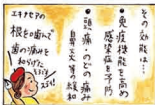 その効能は…
●免疫機能を高め
感染症を予防
●頭痛・のどの痛み
鼻炎の緩和
エキナセアの
根を噛んで
歯の痛みを
和らげた